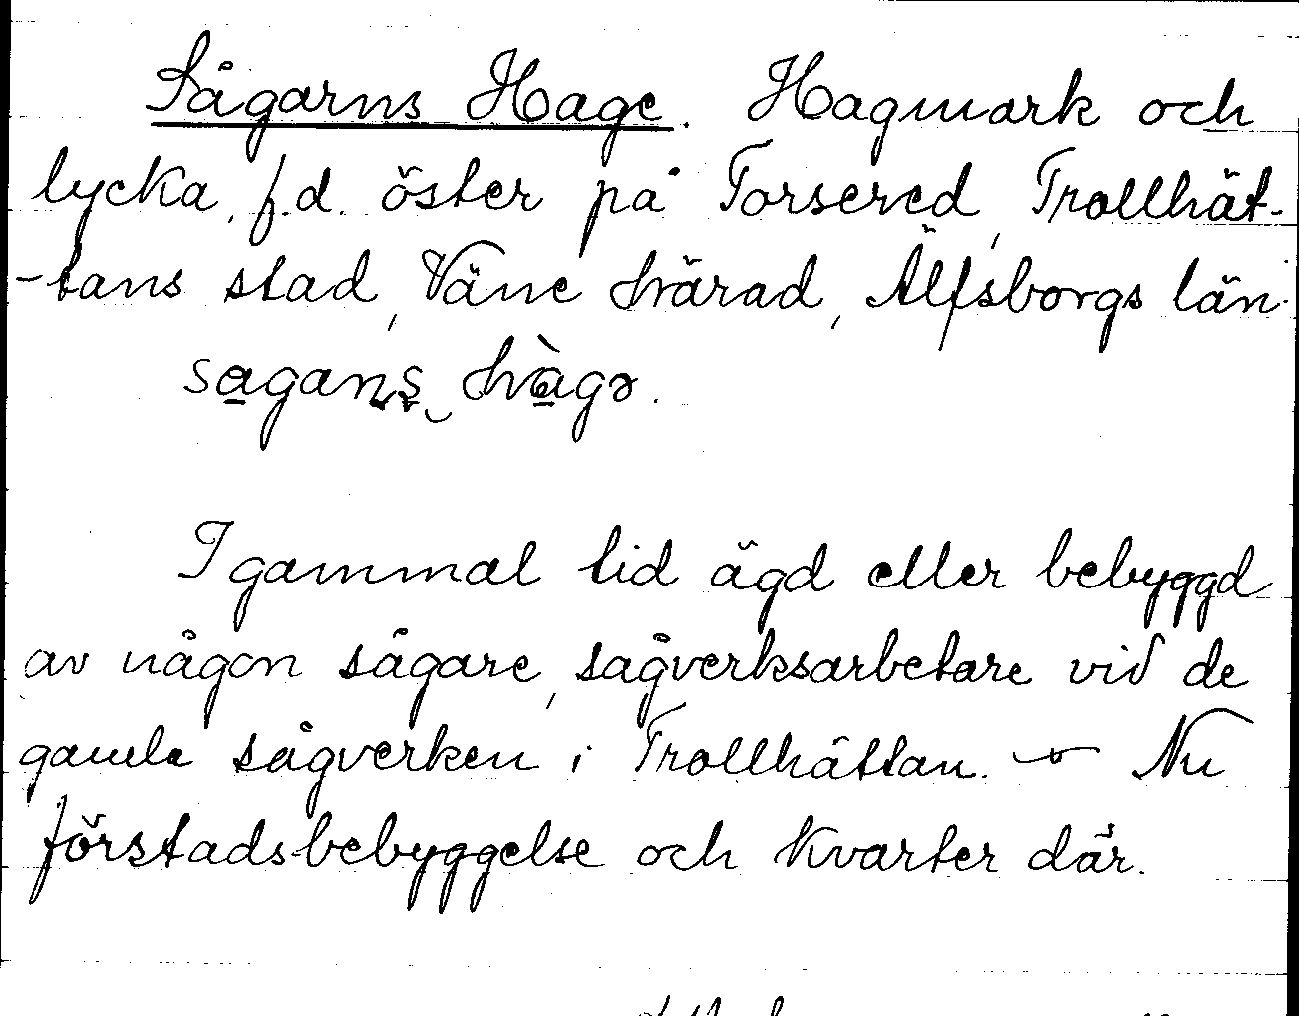 Sågarns Hage. Hagmark och
lycka, f.d. öster på Torsered, Trollhät-
-tans stad, Väne härad, Älfsborgs län.
sagan̥s̥‿hàgə.
I gammal tid ägd eller bebyggd
av någon sågare, sågverksarbetare vid de
gamla sågverken i Trollhättan. — Nu
förstadsbebyggelse och kvarter där.